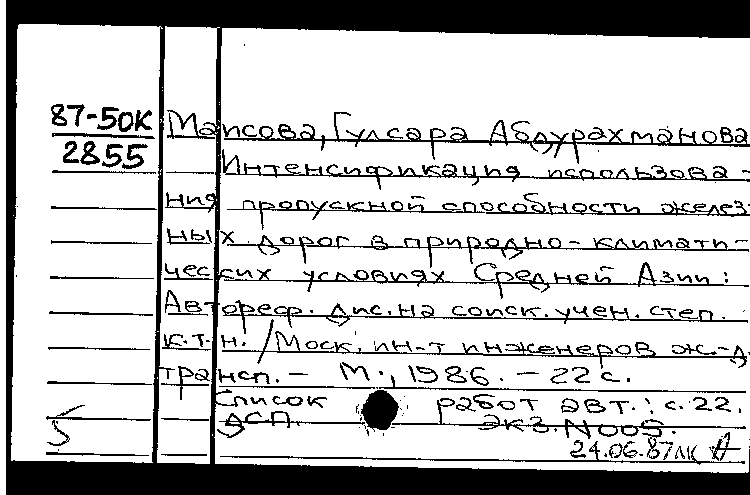 87-50К Маисова, Гулсара Абдурахмановна
2855
Интенсификация использова-
ния пропускной способности желез-
ных дорог в природно-климати-
ческих условиях Средней Азии:
Автореф. дис. на соиск. учен. степ.
к.т.н. / Моск. ин-т инженеров ж.-д.
трансп. - М., 1986. - 22 с.
Список работ авт.: с. 22.
ДСП. Экз. N005.
24.06.87